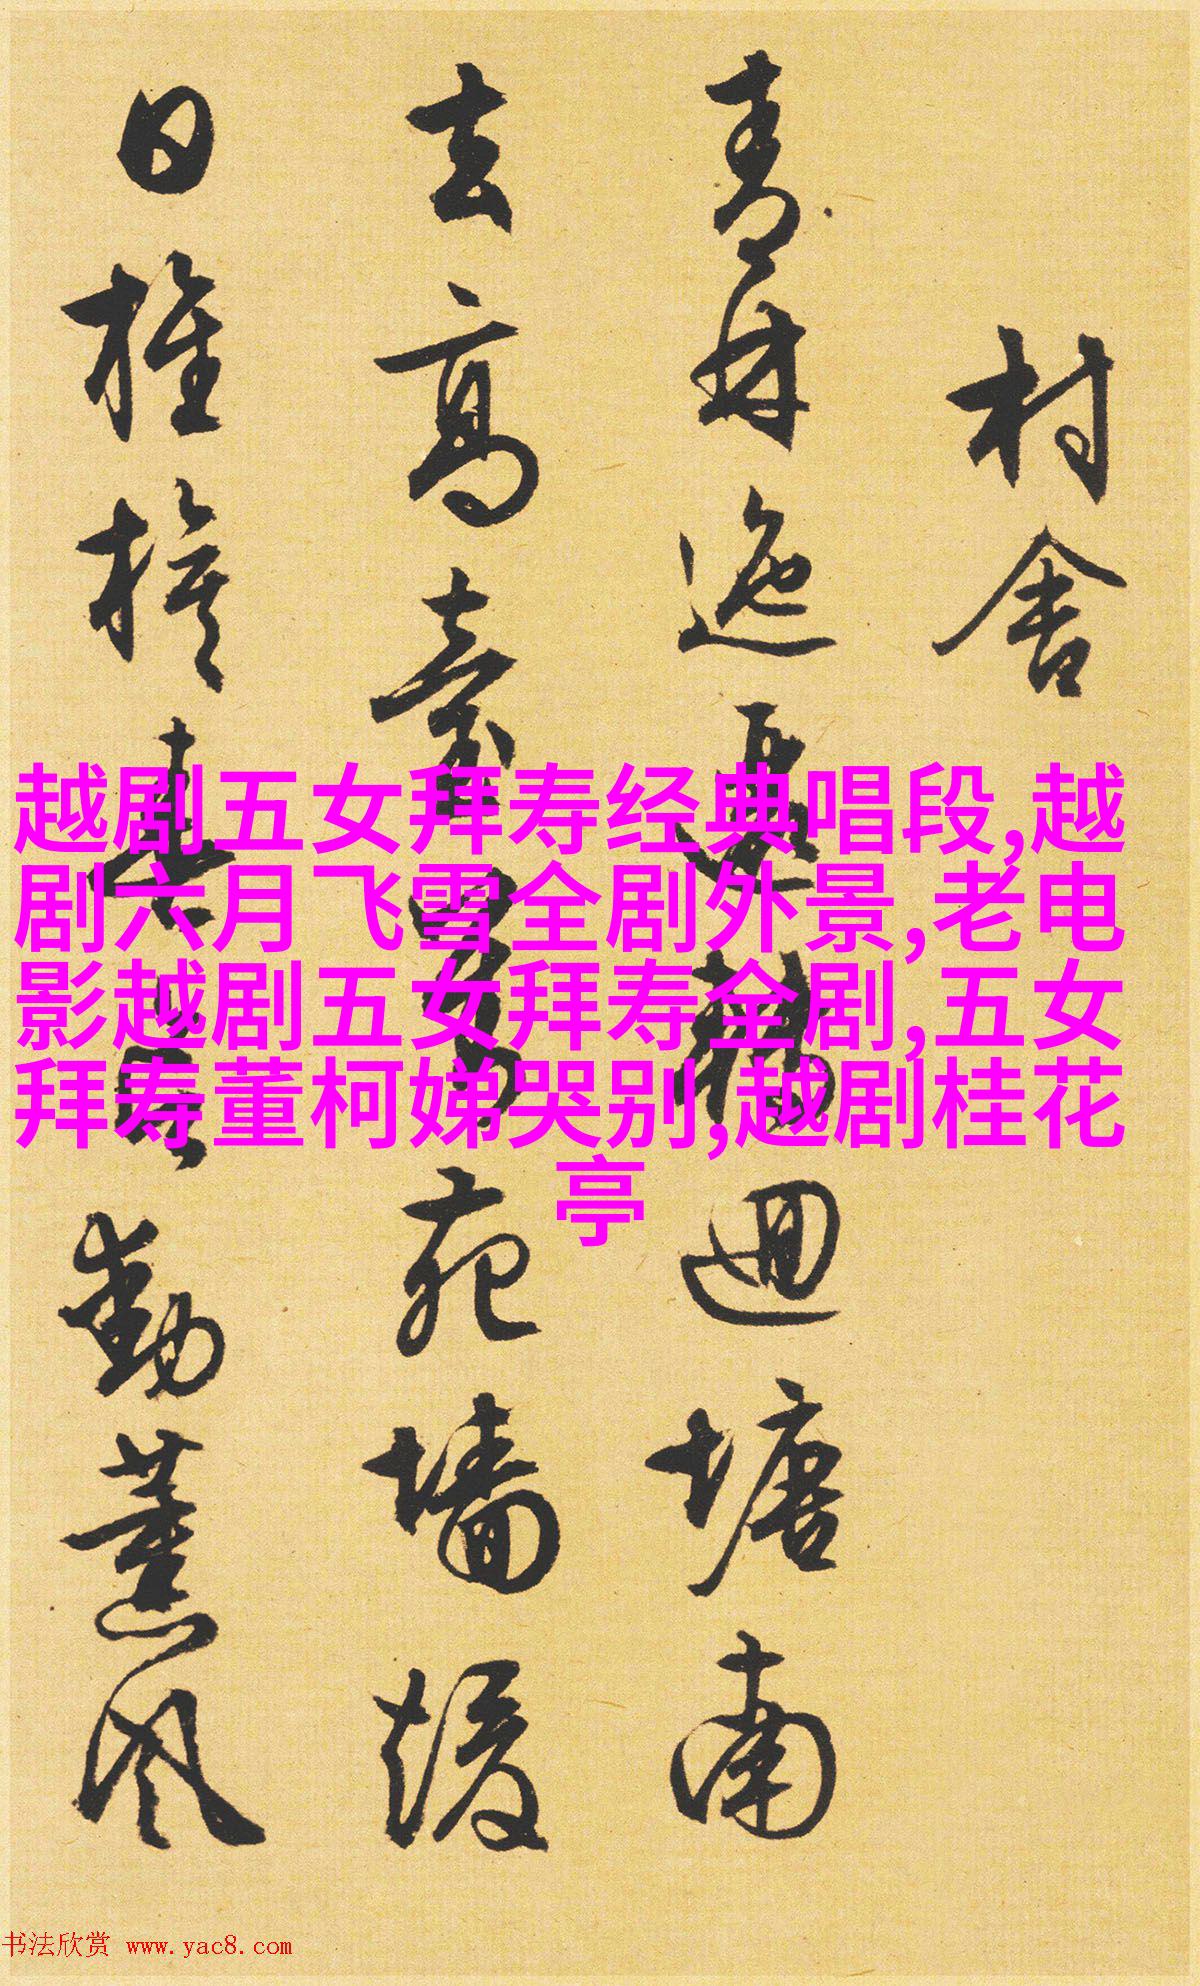 村舍
青林迤
迴塘南
去高臺
苑墙煖
日推
勤薰风
越剧五女拜寿经典唱段,越
剧六月飞雪全剧外景,老电
影越剧五女拜寿全剧,五女
拜寿董柯娣哭别,越剧桂花
亭
书法欣赏 www.yac8.com